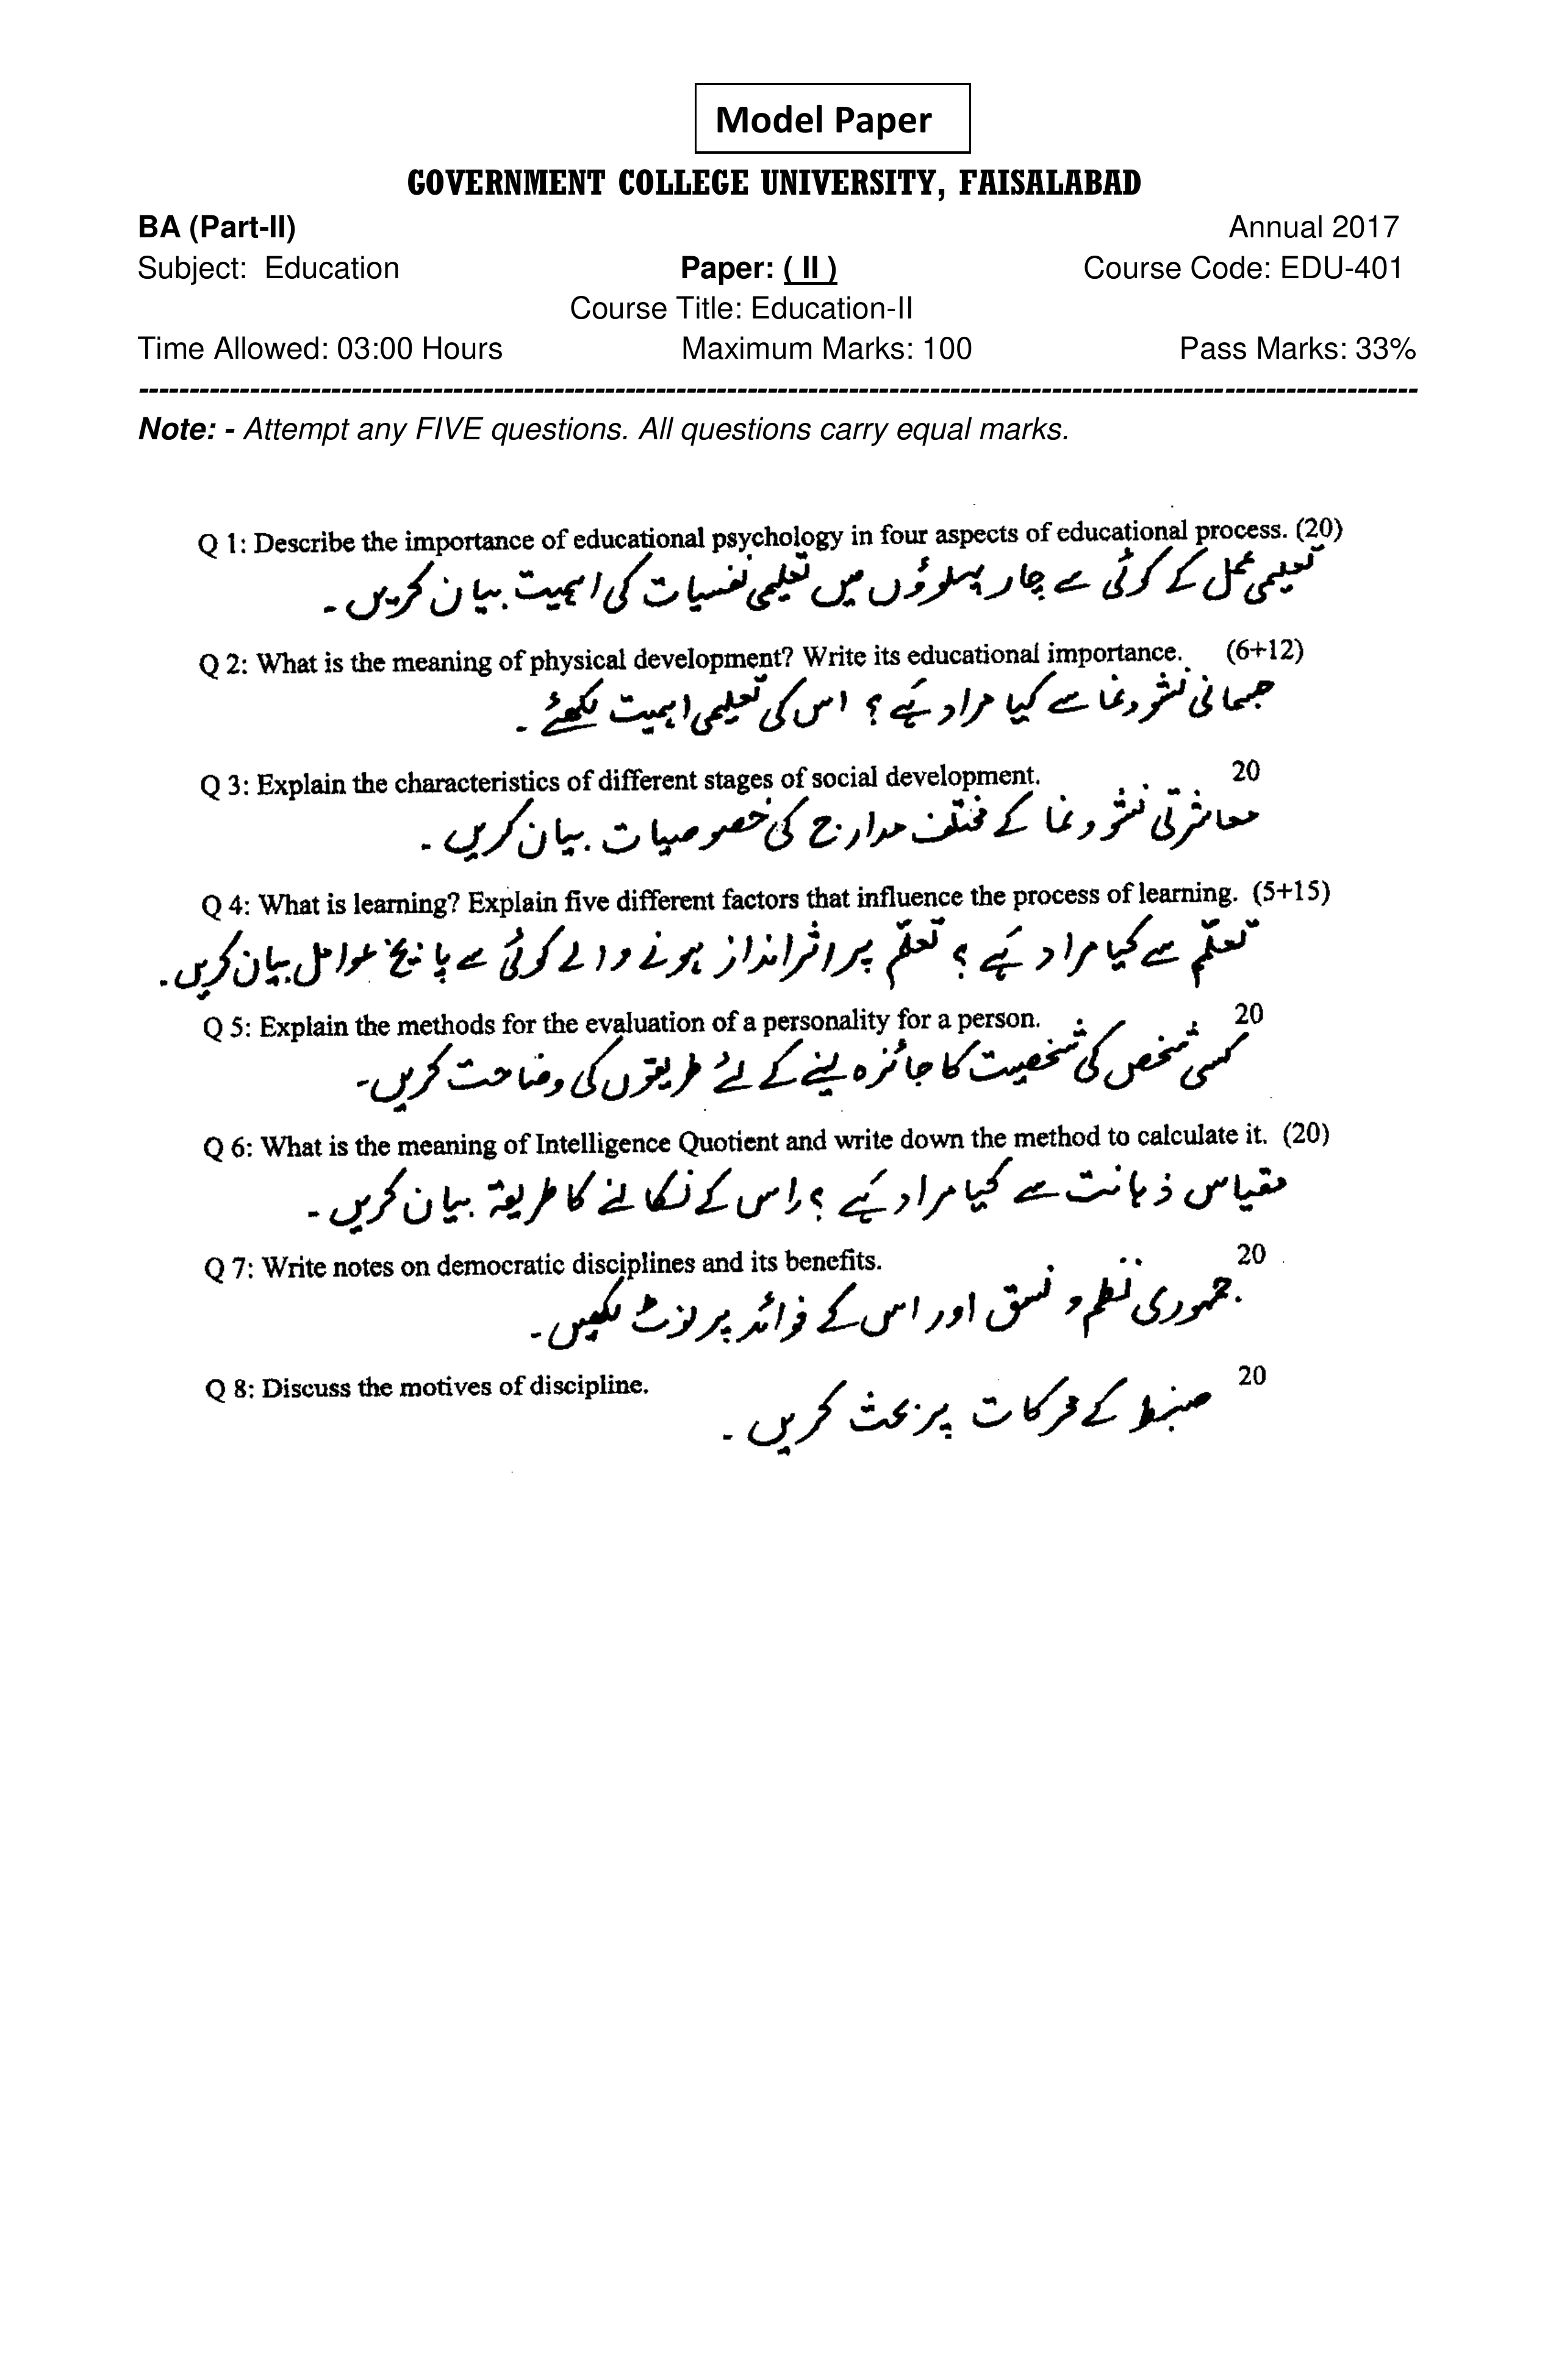 Model Paper
GOVERNMENT COLLEGE UNIVERSITY, FAISALABAD
BA (Part-II) Annual 2017
Subject: Education Paper: ( II ) Course Code: EDU-401
Course Title: Education-II
Time Allowed: 03:00 Hours Maximum Marks: 100 Pass Marks: 33%
Note: - Attempt any FIVE questions. All questions carry equal marks.
Q 1: Describe the importance of educational psychology in four aspects of educational process. (20)
تعلیمی عمل کے کوئی سے چار پہلوؤں میں تعلیمی نفسیات کی اہمیت بیان کریں۔
Q 2: What is the meaning of physical development? Write its educational importance. (6+12)
جسمانی نشوونما سے کیا مراد ہے؟ اس کی تعلیمی اہمیت لکھئے۔
Q 3: Explain the characteristics of different stages of social development. 20
معاشرتی نشوونما کے مختلف مدارج کی خصوصیات بیان کریں۔
Q 4: What is learning? Explain five different factors that influence the process of learning. (5+15)
تعلّم سے کیا مراد ہے؟ تعلّم پر اثر انداز ہونے والے کوئی سے پانچ عوامل بیان کریں۔
Q 5: Explain the methods for the evaluation of a personality for a person. 20
کسی شخص کی شخصیت کا جائزہ لینے کے لئے طریقوں کی وضاحت کریں۔
Q 6: What is the meaning of Intelligence Quotient and write down the method to calculate it. (20)
مقیاس ذہانت سے کیا مراد ہے؟ اس کے نکالنے کا طریقہ بیان کریں۔
Q 7: Write notes on democratic disciplines and its benefits. 20
جمہوری نظم و نسق اور اس کے فوائد پر نوٹ لکھیں۔
Q 8: Discuss the motives of discipline. 20
ضبط کے محرکات پر بحث کریں۔